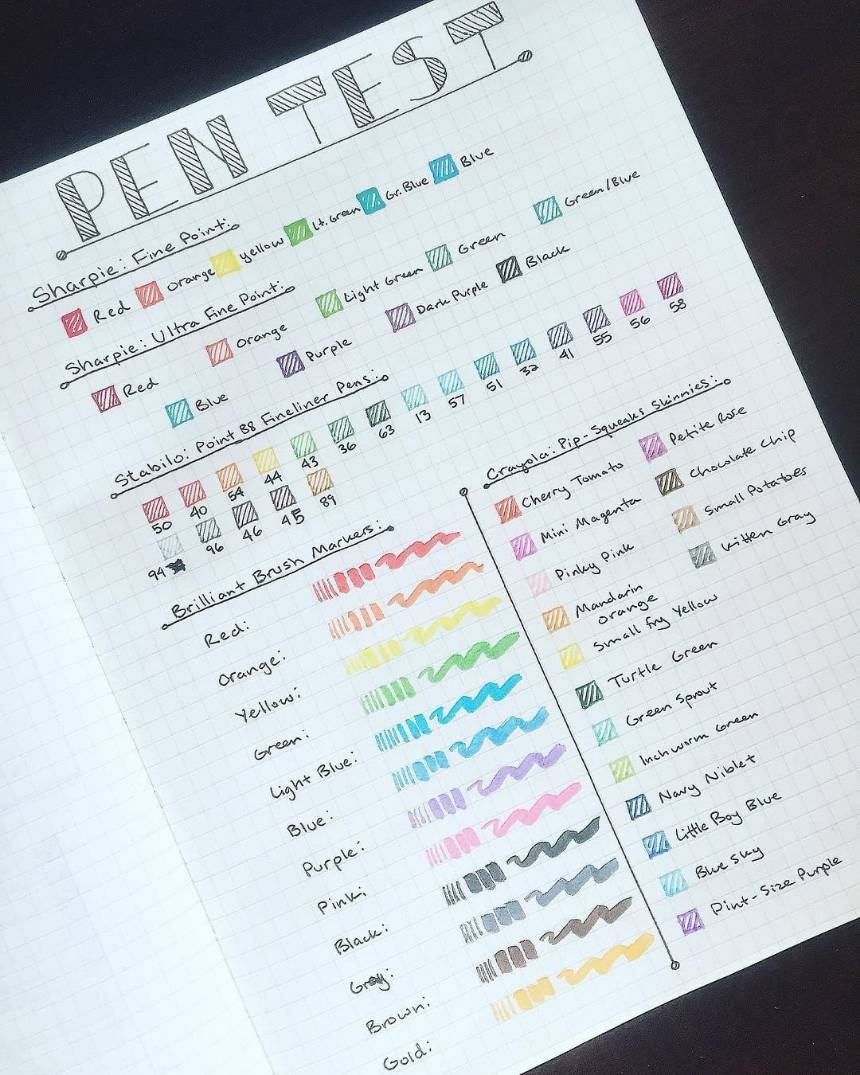 PEN TEST
Sharpie: Fine Point:
Red Orange Yellow Lt. Green Gr. Blue Blue
Sharpie: Ultra Fine Point:
Red Orange Light Green Green Green/Blue
Blue Purple Dark Purple Black
Stabilo: Point 88 Fineliner Pens:
50 40 54 44 43 36 63 13 57 51 32 41 55 56 58
94 96 46 45 89
Brilliant Brush Markers:
Red:
Orange:
Yellow:
Green:
Light Blue:
Blue:
Purple:
Pink:
Black:
Gray:
Brown:
Gold:
Crayola: Pip-Squeaks Skinnies:
Cherry Tomato
Mini Magenta
Pinky Pink
Mandarin
Orange
Small Fry Yellow
Turtle Green
Green Sprout
Inchworm Green
Navy Niblet
Little Boy Blue
Blue Sky
Pint-Size Purple
Petite Rose
Chocolate Chip
Small Potatoes
Kitten Gray